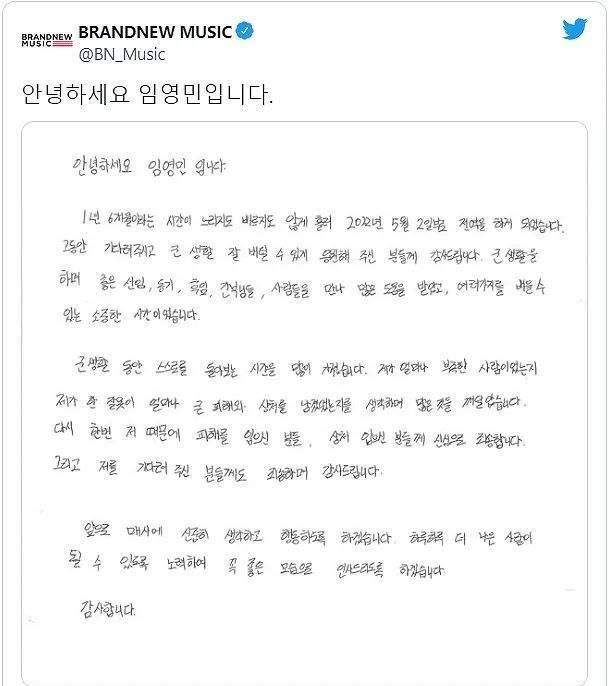 BRANDNEW MUSIC
BRANDNEW MUSIC
@BN_Music
안녕하세요 임영민입니다.
안녕하세요 임영민 입니다.
1년 6개월이라는 시간이 느리지도 빠르지도 않게 흘러 2022년 5월 2일부로 전역을 하게 되었습니다.
그동안 기다려주시고 군 생활 잘 버틸 수 있게 응원해 주신 분들께 감사드립니다. 군 생활을
하며 좋은 선임, 동기, 후임, 간부님들, 사람들을 만나 많은 도움을 받았고, 여러가지를 배울 수
있는 소중한 시간이었습니다.
군생활 동안 스스로를 돌아보는 시간을 많이 가졌습니다. 제가 얼마나 부족한 사람이었는지
제가 한 잘못이 얼마나 큰 피해와 상처를 남겼었는지를 생각하며 많은 것들 깨달았습니다.
다시 한번 저 때문에 피해를 입으신 분들, 상처 입으신 분들께 진심으로 죄송합니다.
그리고 저를 기다려 주신 분들께도 죄송하며 감사드립니다.
앞으로 매사에 신중히 생각하고 행동하도록 하겠습니다. 하루하루 더 나은 사람이
될 수 있도록 노력하여 꼭 좋은 모습으로 인사드리도록 하겠습니다.
감사합니다.